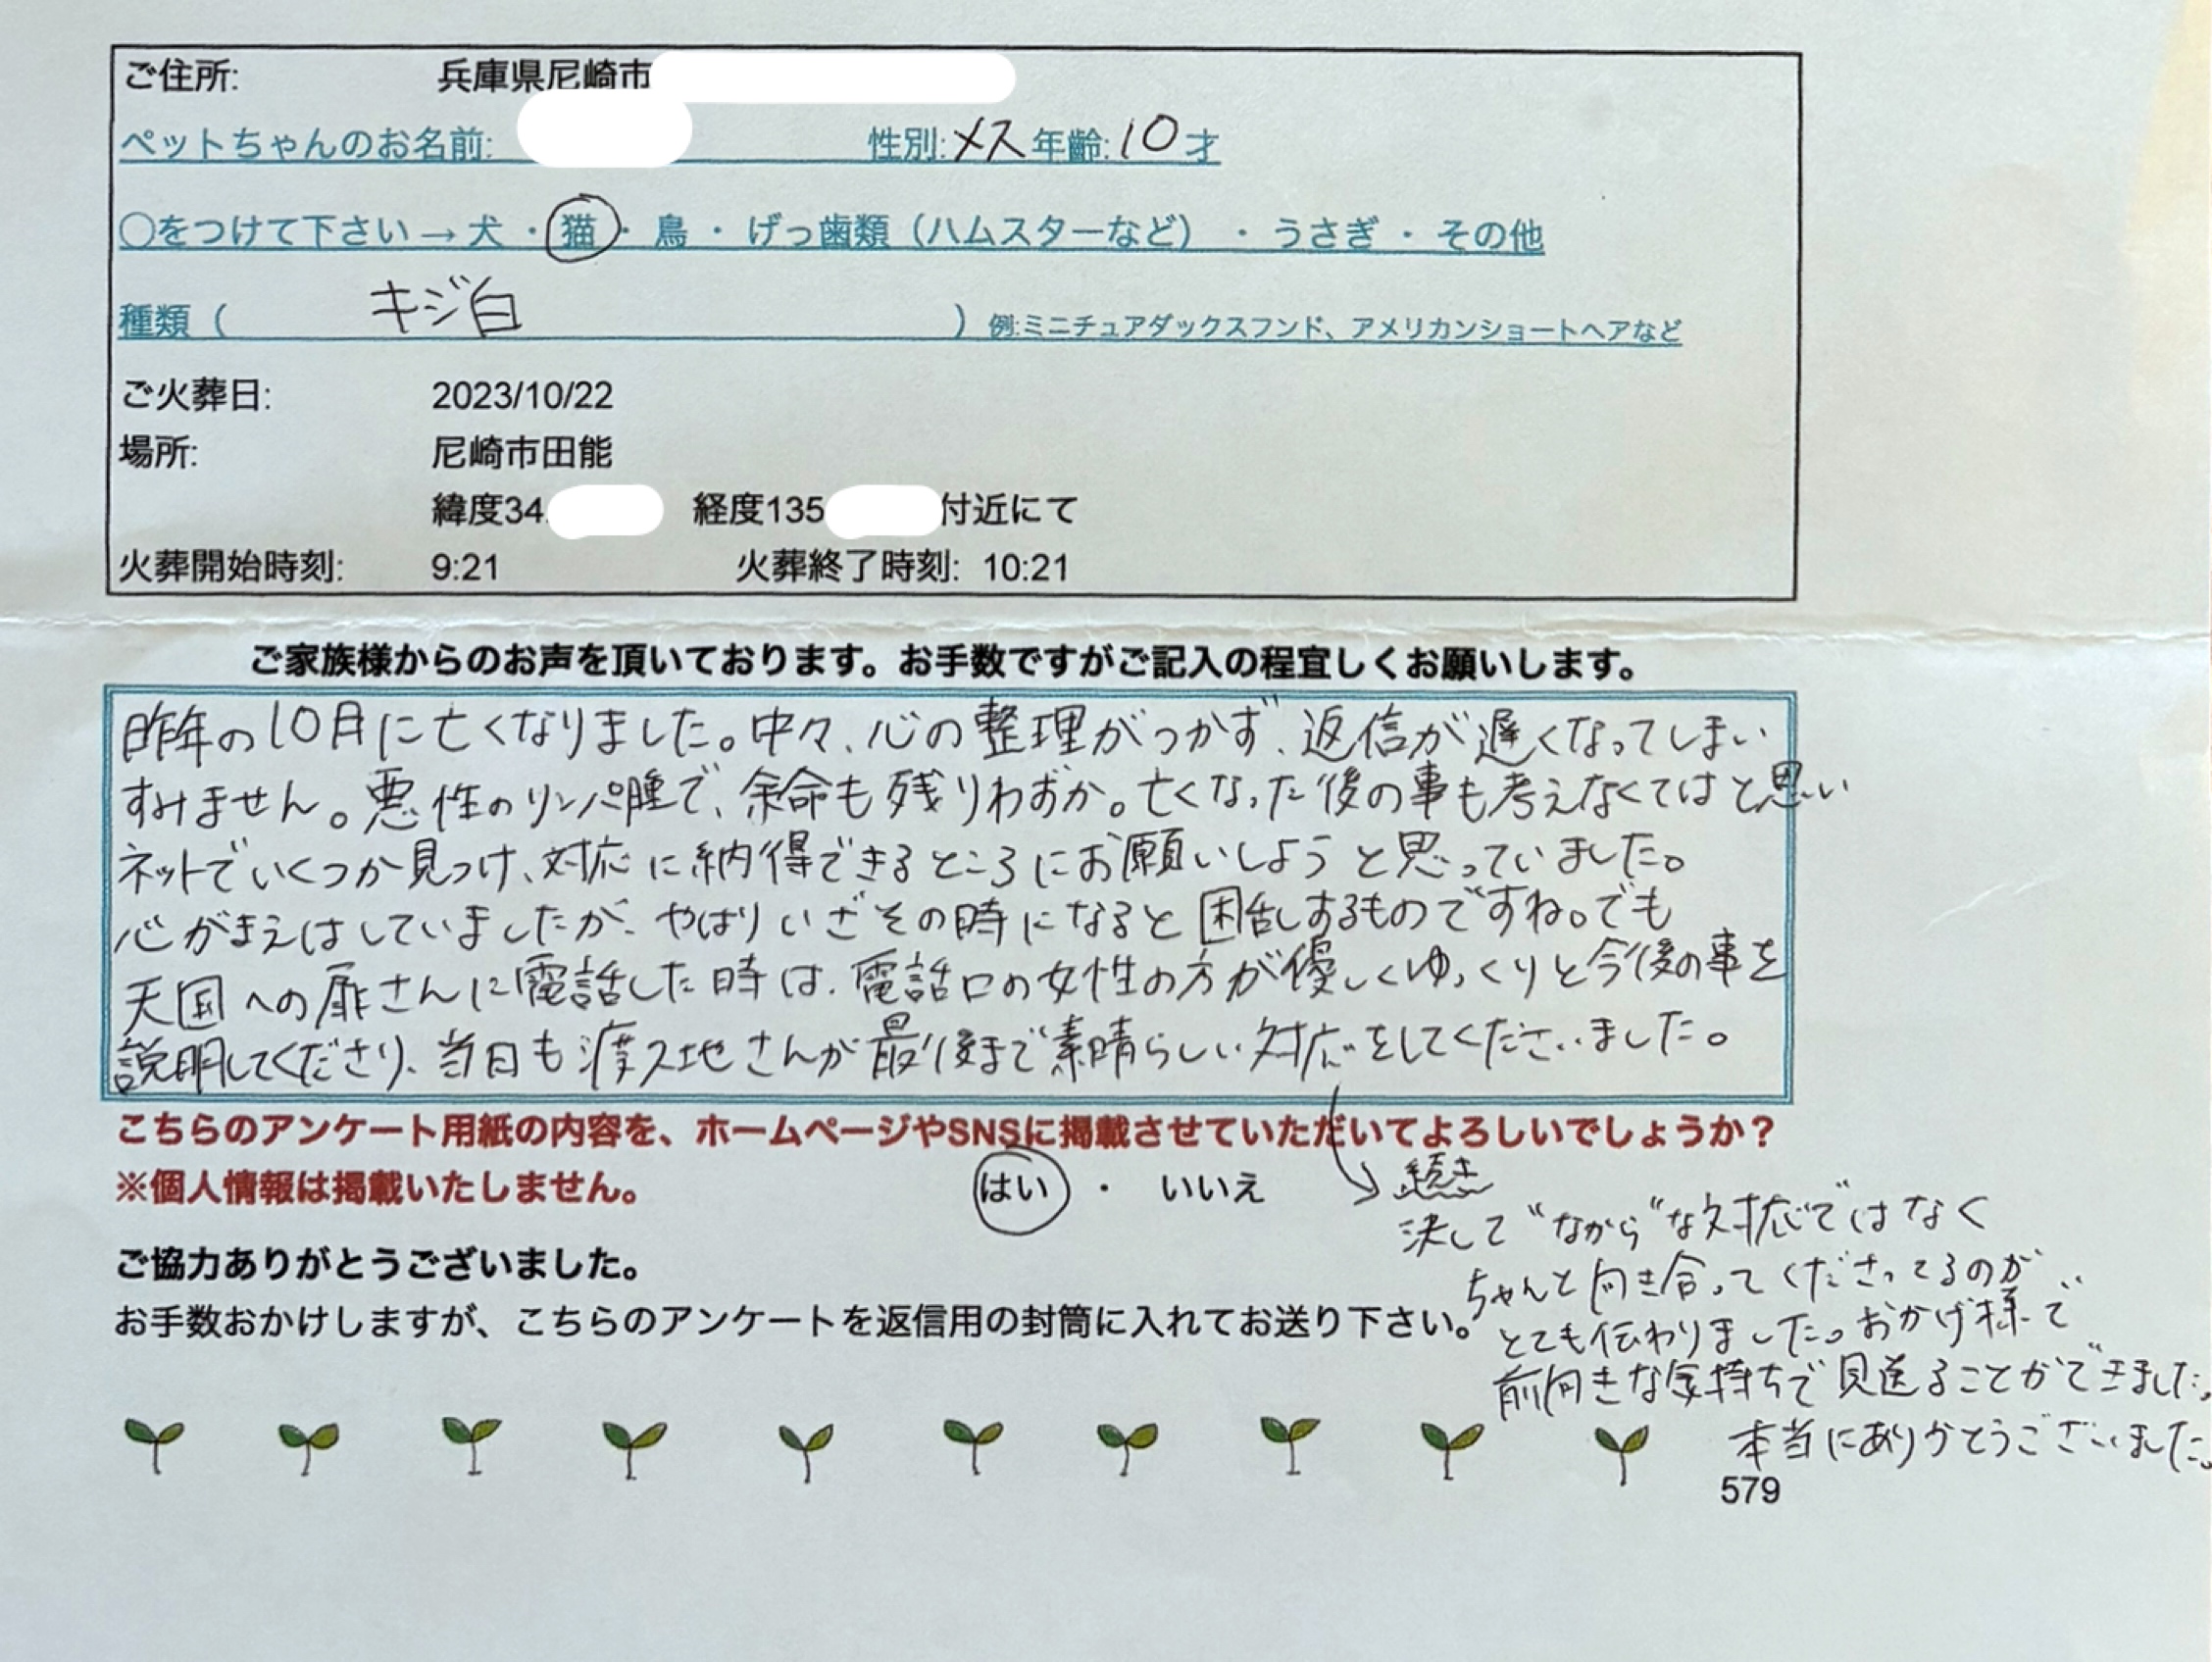 ご住所: 兵庫県尼崎市
ペットちゃんのお名前: 性別:メス 年齢:10才
○をつけて下さい→犬・猫・鳥・げっ歯類（ハムスターなど）・うさぎ・その他
種類（ キジ白 ）例:ミニチュアダックスフンド、アメリカンショートヘアなど
ご火葬日: 2023/10/22
場所: 尼崎市田能
緯度34. 経度135 付近にて
火葬開始時刻: 9:21 火葬終了時刻: 10:21
ご家族様からのお声を頂いております。お手数ですがご記入の程宜しくお願いします。
昨年の10月に亡くなりました。中々、心の整理がつかず、返信が遅くなってしまい
すみません。悪性のリンパ腫で、余命も残りわずか。亡くなった後の事も考えなくてはと思い
ネットでいくつか見つけ、対応に納得できるところにお願いしようと思っていました。
心がまえはしていましたが、やはりいざその時になると困乱するものですね。でも
天国への扉さんに電話した時は、電話口の女性の方が優しくゆっくりと今後の事を
説明してくださり、当日も渡久地さんが最後まで素晴らしい対応をしてくださいました。
こちらのアンケート用紙の内容を、ホームページやSNSに掲載させていただいてよろしいでしょうか？
※個人情報は掲載いたしません。 はい ・ いいえ
続き
決して"ながら"な対応ではなく
ちゃんと向き合ってくださってるのが
とても伝わりました。おかげ様で
前向きな気持ちで見送ることができました。
本当にありがとうございました。
ご協力ありがとうございました。
お手数おかけしますが、こちらのアンケートを返信用の封筒に入れてお送り下さい。
579